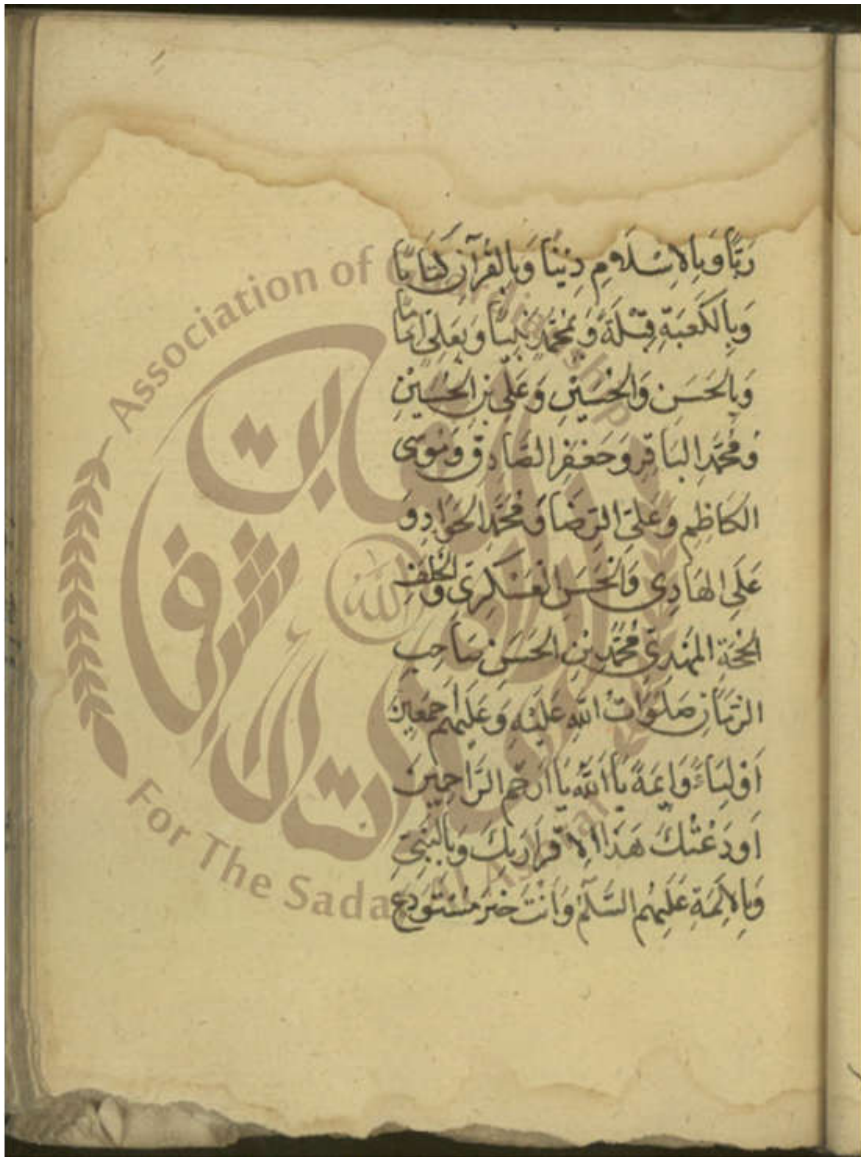 رَبًّا وَبِالْاِسْلَامِ دِيْنًا وَبِالْقُرْآنِ كِتَابًا
وَبِالْكَعْبَةِ قِبْلَةً وَبِمُحَمَّدٍ نَبِيًّا وَبِعَلِيٍّ اِمَامًا
وَبِالْحَسَنِ وَالْحُسَيْنِ وَعَلِيِّ بْنِ الْحُسَيْنِ
وَمُحَمَّدِ الْبَاقِرِ وَجَعْفَرِ الصَّادِقِ وَمُوْسَى
الْكَاظِمِ وَعَلِيِّ الرِّضَا وَمُحَمَّدِ الْجَوَادِ وَ
عَلِيِّ الْهَادِي وَالْحَسَنِ الْعَسْكَرِيِّ وَالْخَلَفِ
الْحُجَّةِ الْمَهْدِيِّ مُحَمَّدِ بْنِ الْحَسَنِ صَاحِبِ
الزَّمَانِ صَلَوَاتُ اللهِ عَلَيْهِ وَعَلَيْهِمْ اَجْمَعِيْنَ
اَوْلِيَاءَ وَاَئِمَّةً يَا اَللهُ يَا اَرْحَمَ الرَّاحِمِيْنَ
اَوْدَعْتُكَ هَذَا الْاِقْرَارَ بِكَ وَبِالنَّبِيِّ
وَبِالْاَئِمَّةِ عَلَيْهِمُ السَّلَمُ وَاَنْتَ خَيْرُ مُسْتَوْدَعٍ
Association of
For The